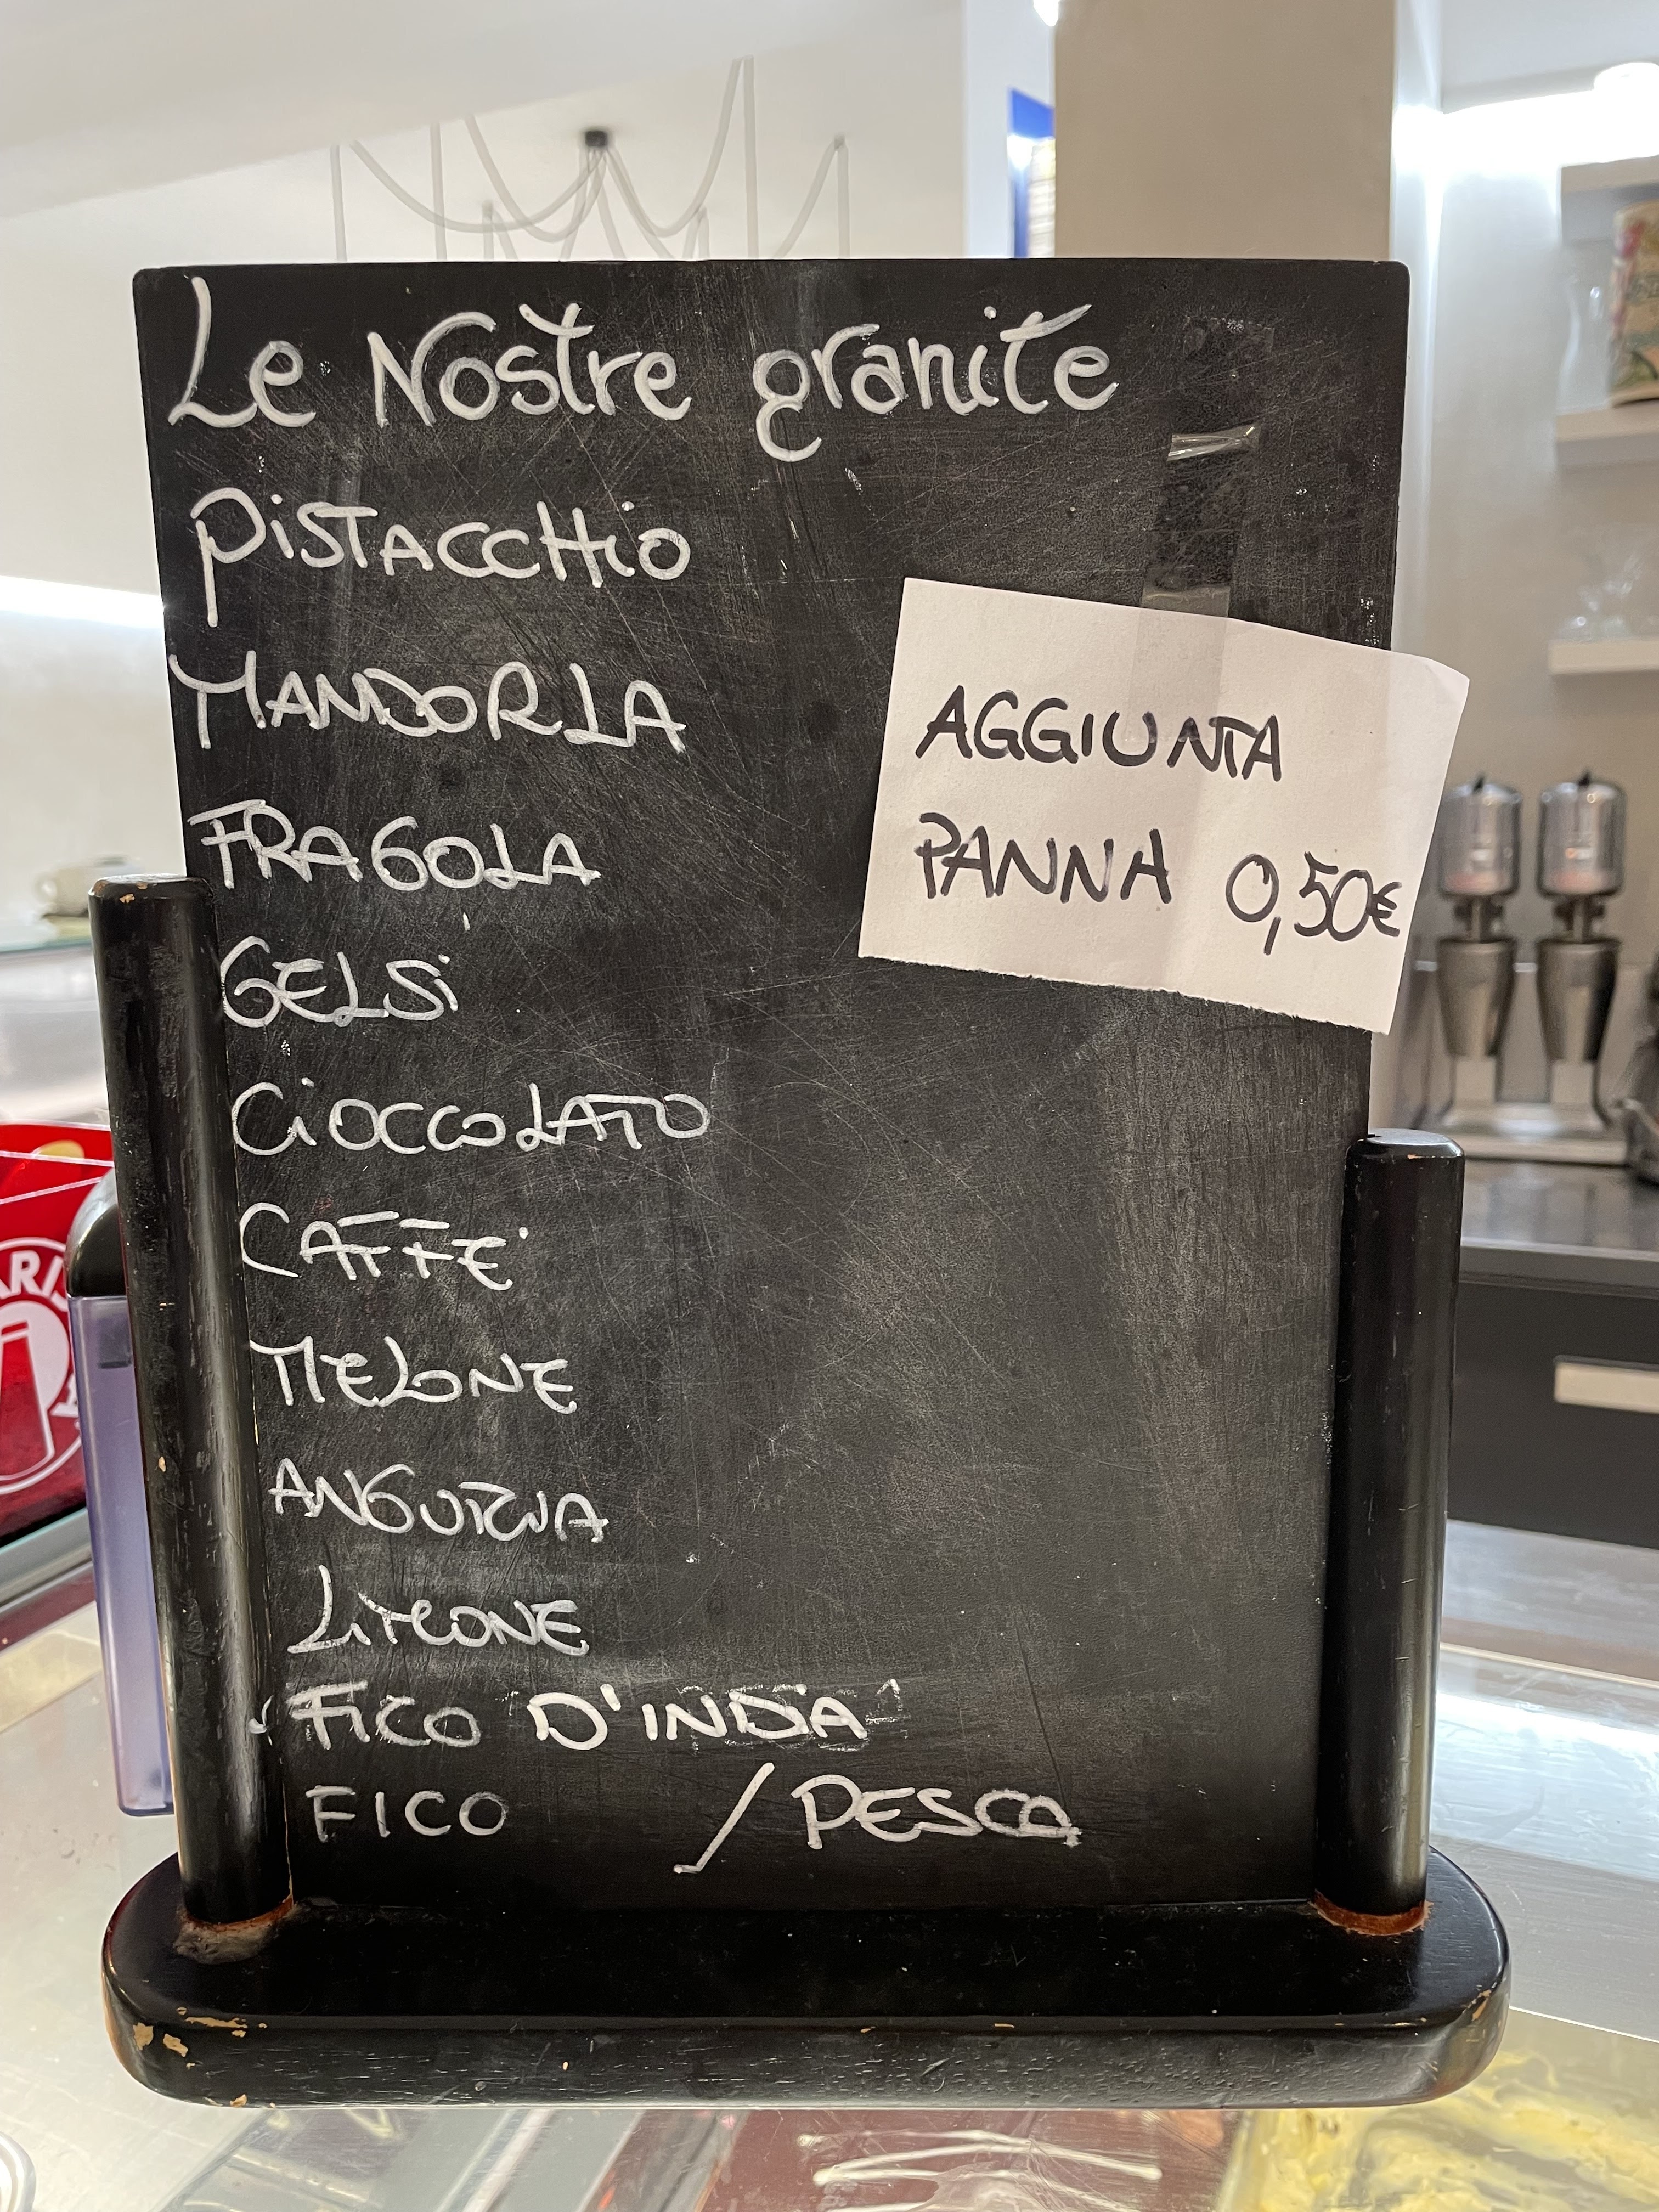 Le Nostre granite
PiSTACCHiO
MANDORLA
FRAGOLA
GELSi
CiOCCOLATO
CAFFE'
MELONE
ANGURIA
LiMONE
FICO D'INDIA
FICO / PESCA
AGGIUNTA
PANNA 0,50€